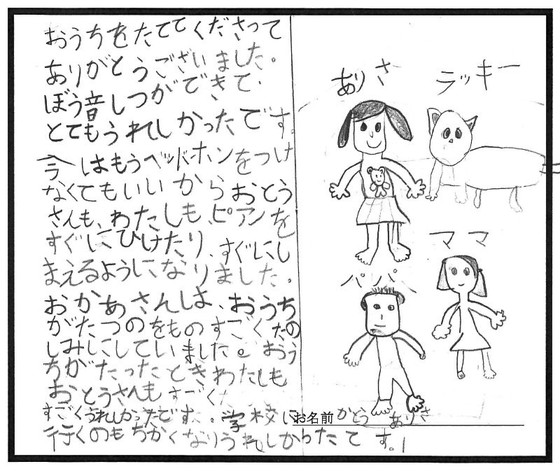 おうちをたててくださって
ありがとうございました。
ぼう音しつができて、
とてもうれしかったです。
今はもうヘッドホンをつけ
なくてもいいからおとう
さんも、わたしも、ピアンを
すぐにひけたり、すぐにし
まえるようになりました。
おかあさんは、おうち
がたつのをものすごくたの
しみにしていました。おう
ちがたったときわたしも
おとうさんもすーごく
すごくうれしかったです。学校に
行くのもちかくなりうれしかったてす。
ありさ
ラッキー
ママ
パパ
お名前 かとう ありさ